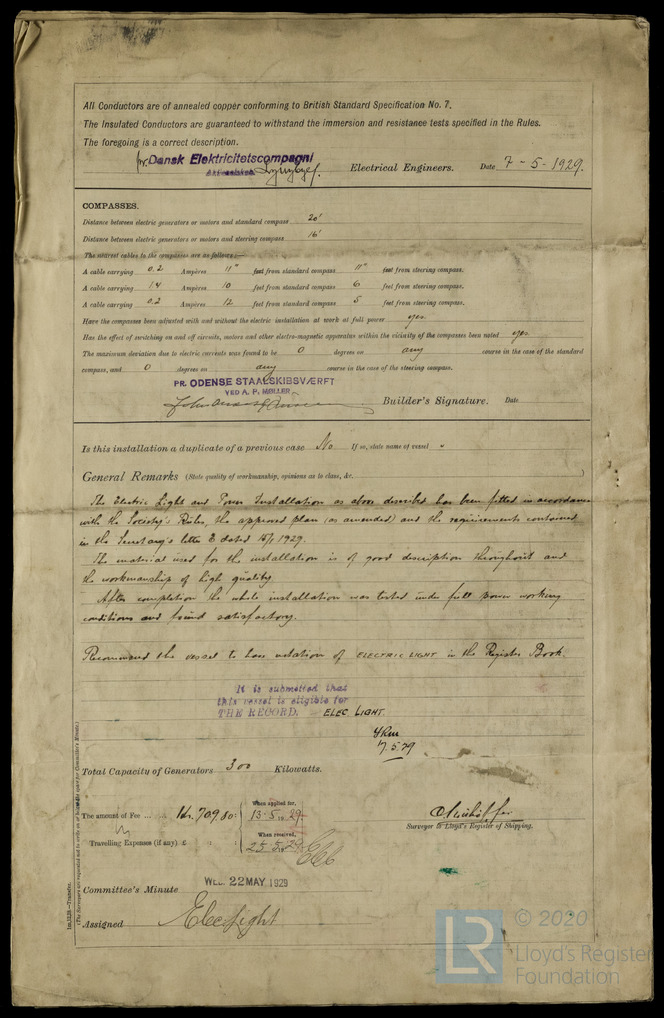 All Conductors are of annealed copper conforming to British Standard Specification No. 7.
The Insulated Conductors are guaranteed to withstand the immersion and resistance tests specified in the Rules.
The foregoing is a correct description.
pr. Dansk Elektricitetscompagni
Electrical Engineers. Date 7-5-1929.
COMPASSES.
Distance between electric generators or motors and standard compass 20'
Distance between electric generators or motors and steering compass 16'
The nearest cables to the compasses are as follows:—
A cable carrying 0.2 Ampères 11" feet from standard compass 11" feet from steering compass.
A cable carrying 14 Ampères 10 feet from standard compass 6 feet from steering compass.
A cable carrying 0.2 Ampères 12 feet from standard compass 5 feet from steering compass.
Have the compasses been adjusted with and without the electric installation at work at full power yes
Has the effect of switching on and off circuits, motors and other electro-magnetic apparatus within the vicinity of the compasses been noted yes
The maximum deviation due to electric currents was found to be 0 degrees on any course in the case of the standard
compass, and 0 degrees on any course in the case of the steering compass.
PR. ODENSE STAALSKIBSVÆRFT
VED A. P. MØLLER
Builder's Signature. Date
Is this installation a duplicate of a previous case No If so, state name of vessel "
General Remarks (State quality of workmanship, opinions as to class, &c. )
The Electric Light and Power Installation as above described has been fitted in accordance
with the Society's Rules, the approved plan (as amended) and the requirements contained
in the Secretary's letter E dated 1929.
The material used for the installation is of good description throughout and
the workmanship of high quality
After completion the whole installation was tested under full power working
conditions and found satisfactory.
Recommend the vessel to have notation of ELECTRIC LIGHT in the Register Book.
It is submitted that
this vessel is eligible for
THE RECORD. ELEC. LIGHT.
17.5.29
Total Capacity of Generators 300 Kilowatts.
The amount of Fee Kr. 709,80: When applied for, 13.5.1929.
Travelling Expenses (if any) £ When received, 25.5.29
Surveyor to Lloyd's Register of Shipping.
Committee's Minute WED. 22 MAY. 1929
Assigned Elec Light
1m.10.28.—Transfer.
(The Surveyors are requested not to write on or below the space for Committee's Minute.)
LR
© 2020
Lloyd's Register
Foundation